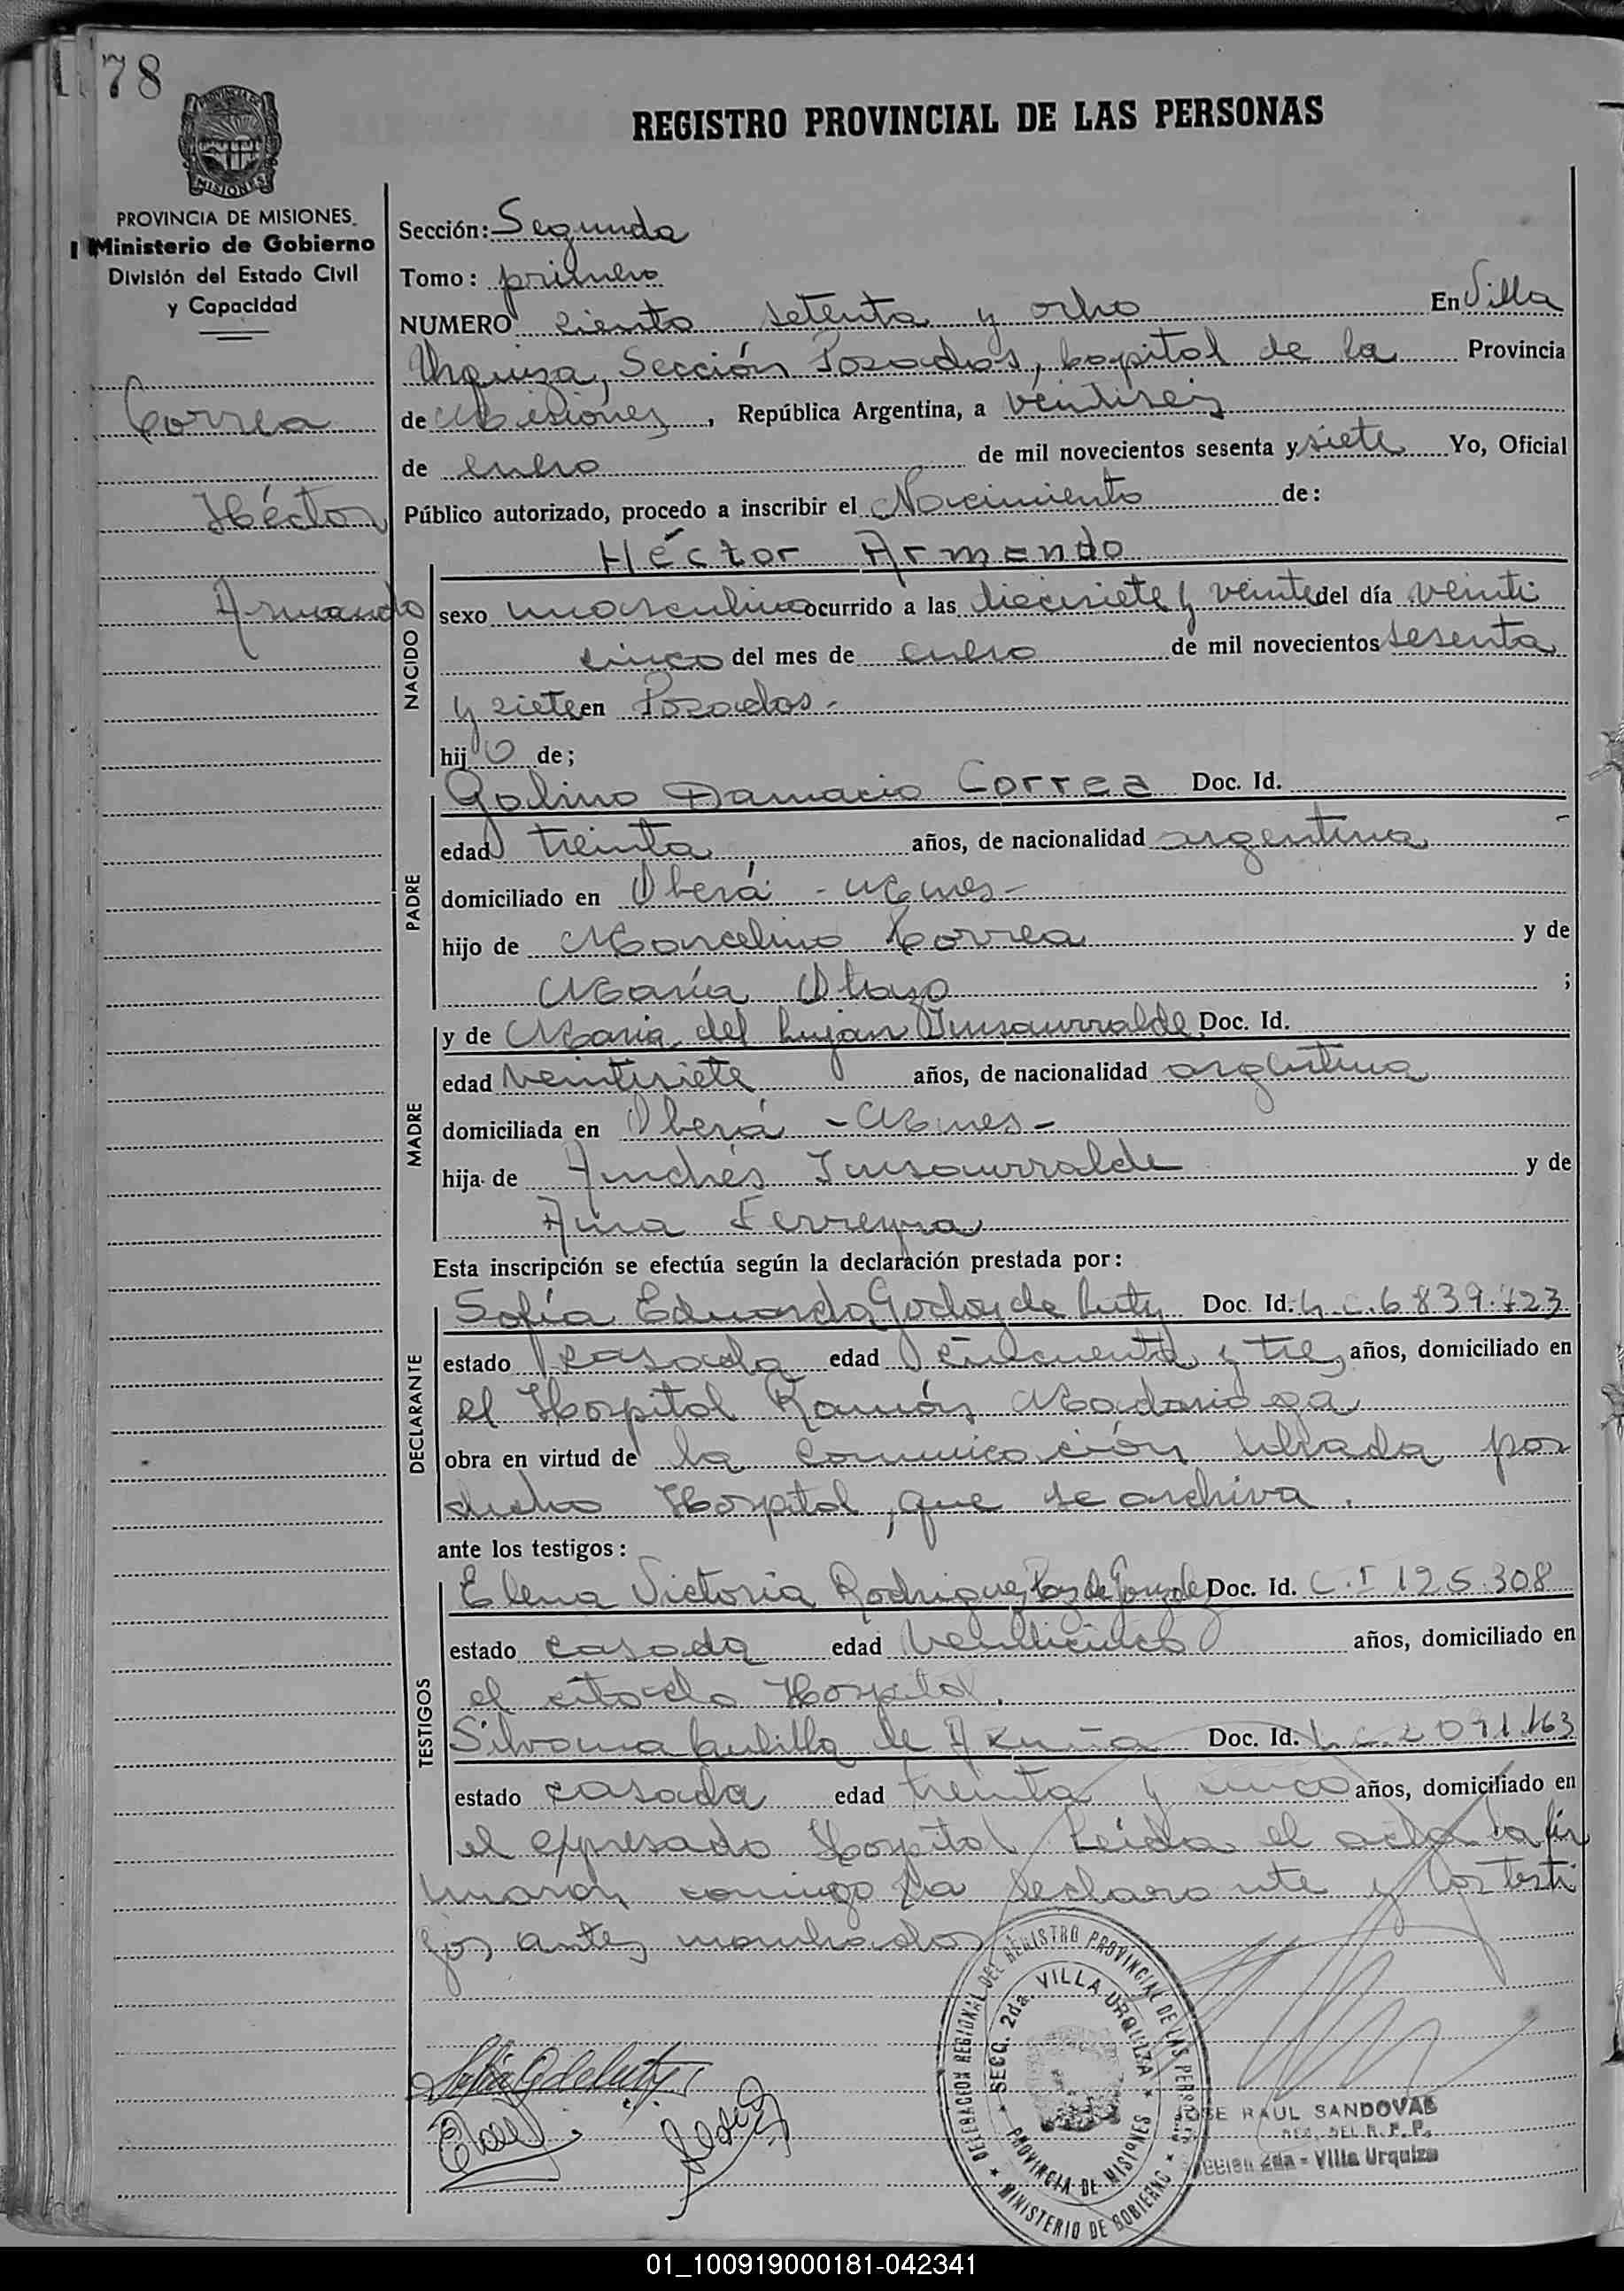 178
REGISTRO PROVINCIAL DE LAS PERSONAS
PROVINCIA DE MISIONES
Ministerio de Gobierno
División del Estado Civil
y Capacidad
Correa
Héctor
Armando
Sección: Segunda
Tomo: primero
NUMERO ciento setenta y ocho En Villa
Urquiza, Sección Posadas, Capital de la Provincia
de Misiones, República Argentina, a veintiseis
de enero de mil novecientos sesenta y siete Yo, Oficial
Público autorizado, procedo a inscribir el Nacimiento de:
Héctor Armando
NACIDO
sexo masculino ocurrido a las diecisiete y veinte del día veinti
cinco del mes de enero de mil novecientos sesenta
y siete en Posadas.-
hijo de;
PADRE
Galino Damacio Correa Doc. Id.
edad treinta años, de nacionalidad argentina
domiciliado en Oberá - Mnes-
hijo de Marcelino Correa y de
María Otazo ;
MADRE
y de Maria del Lujan Insaurralde Doc. Id.
edad veintisiete años, de nacionalidad argentina
domiciliada en Oberá - Mnes-
hija de Andrés Insaurralde y de
Ana Ferreyra
Esta inscripción se efectúa según la declaración prestada por:
DECLARANTE
Sofía Eduarda Godoy de Luty Doc. Id. L.C. 6839.723
estado casada edad cincuenta y tres años, domiciliado en
el Hospital Ramón Madariaga
obra en virtud de la comunicación librada por
dicho Hospital, que se archiva.
ante los testigos:
TESTIGOS
Elena Victoria Rodriguez Paz de Doc. Id. C.I 125.308
estado casada edad veinticinco años, domiciliado en
el citado Hospital.
Silvana de Akuña Doc. Id. L.C. 091.163
estado casada edad treinta y cinco años, domiciliado en
el expresado Hospital Leída el acta la fir
maron conmigo la declarante y los testi
gos antes nombrados
DELEGACION REGIONAL DEL REGISTRO PROVINCIAL DE LAS PERSONAS
SECC. 2da. VILLA URQUIZA
PROVINCIA DE MISIONES
MINISTERIO DE GOBIERNO
JOSE RAUL SANDOVAL
DEL R. P. P.
Sección 2da - Villa Urquiza
01_100919000181-042341